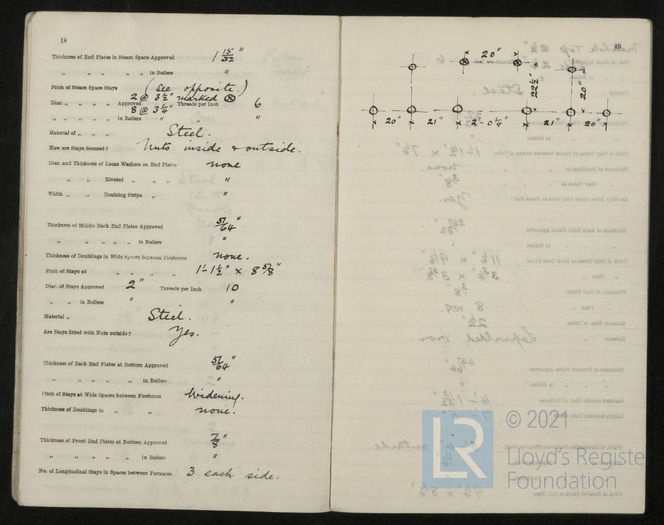 18
Thickness of End Plates in Steam Space Approved 1 15/32"
„ „ „ „ „ in Boilers "
Pitch of Steam Space Stays (See opposite)
Diar. „ „ „ „ Approved 2 @ 3½" marked ⊗ 8 @ 3¼" Threads per Inch 6
„ „ „ „ in Boilers " „ "
Material of „ „ „ Steel.
How are Stays Secured? Nuts inside & outside.
Diar. and Thickness of Loose Washers on End Plates none
„ „ Riveted „ „ „ "
Width „ „ Doubling Strips „ „ "
Thickness of Middle Back End Plates Approved 51/64"
„ „ „ „ „ in Boilers "
Thickness of Doublings in Wide Spaces between Fireboxes none.
Pitch of Stays at „ „ „ „ 1'-1½" x 8 5/8"
Diar. of Stays Approved 2" Threads per Inch 10
„ „ in Boilers " „ "
Material „ Steel.
Are Stays fitted with Nuts outside? Yes.
Thickness of Back End Plates at Bottom Approved 51/64"
„ „ „ „ „ in Boilers "
Pitch of Stays at Wide Spaces between Fireboxes Widening.
Thickness of Doublings in „ „ none.
Thickness of Front End Plates at Bottom Approved 7/8"
„ „ „ „ „ in Boilers "
No. of Longitudinal Stays in Spaces between Furnaces 3 each side.
19
20"
22½" 20"
20" 21" 2'-0¼" 21" 20"
© 2021
LR Lloyd's Register
Foundation